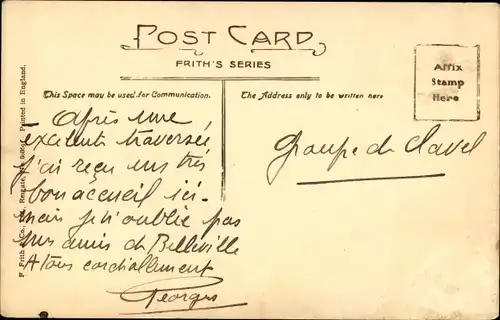 POST CARD
FRITH'S SERIES
This Space may be used for Communication.
The Address only to be written here
Affix
Stamp
Here
Après une
excelente traversée
j'ai reçu un très
bon accueil ici-
mais je n'oublie pas
mes amis de Belleville
A tous cordiallement
Georges
groupe de Clavel
F. Frith & Co., Reigate, Printed in England.